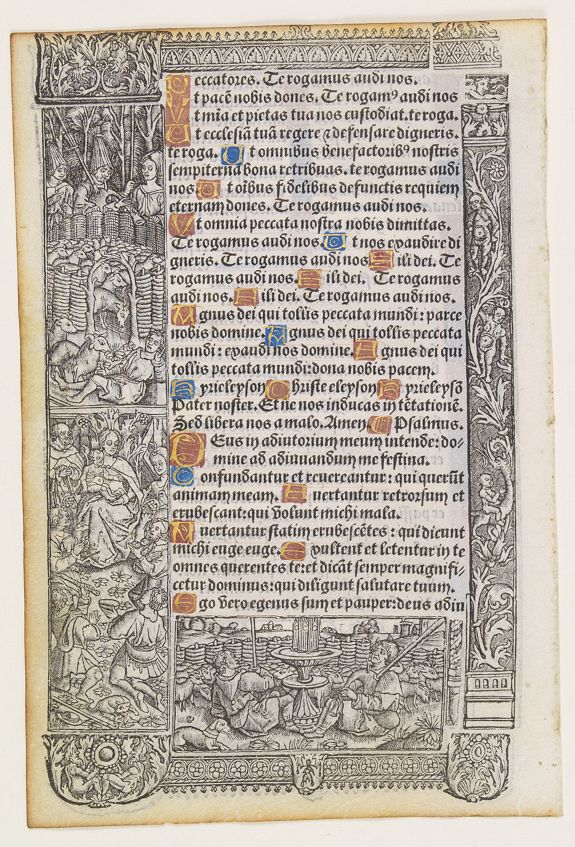 Peccatores. Te rogamus audi nos.
Ut pacē nobis dones. Te rogamꝰ audi nos
Ut mīa et pietas tua nos custodiat. te roga.
Ut ecclesiā tuā regere ⁊ defensare digneris.
te roga. Ut omnibus benefactoribꝰ nostris
sempiterna bona retribuas. te rogamus audi
nos. Ut oībus fidelibus defunctis requiem
eternam dones. Te rogamus audi nos.
Ut omnia peccata nostra nobis dimittas.
Te rogamus audi nos. Ut nos exaudire di
gneris. Te rogamus audi nos. Fili dei. Te
rogamus audi nos. Fili dei. Te rogamus
audi nos. Fili dei. Te rogamus audi nos.
Agnus dei qui tollis peccata mundi: parce
nobis domine. Agnus dei qui tollis peccata
mundi: exaudi nos domine. Agnus dei qui
tollis peccata mundi: dona nobis pacem.
Kyrieleyson Christe eleyson Kyrieleysō
Pater noster. Et ne nos inducas in tētationē.
Sed libera nos a malo. Amen. Psalmus.
Deus in adiutorium meum intende: do-
mine ad adiuvandum me festina.
Confundantur et revereantur: qui querūt
animam meam. Avertantur retrorsum et
erubescant: qui volunt michi mala.
Avertantur statim erubescētes: qui dicunt
michi euge euge. Exultent et letentur in te
omnes querentes te: et dicāt semper magnifi-
cetur dominus: qui diligunt salutare tuum.
Ego vero egenus sum et pauper: deus adiu